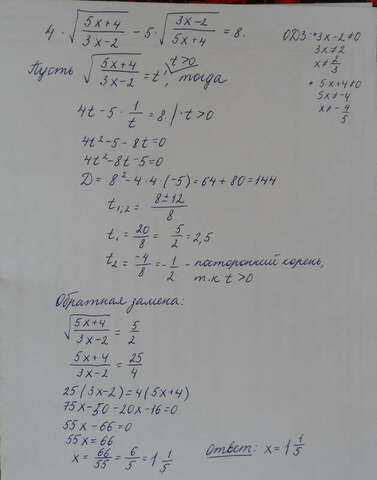 4 · √((5x+4)/(3x-2)) - 5 · √((3x-2)/(5x+4)) = 8.
ОДЗ: * 3x-2≠0
3x≠2
x≠2/3
* 5x+4≠0
5x≠-4
x≠-4/5
Пусть √((5x+4)/(3x-2)) = t, t>0, тогда
4t - 5 · 1/t = 8 | · t>0
4t²-5-8t=0
4t²-8t-5=0
D = 8²-4·4·(-5)=64+80=144
t₁,₂ = (8±12)/8
t₁ = 20/8 = 5/2 = 2,5
t₂ = -4/8 = -1/2 - посторонний корень,
т.к t>0
Обратная замена:
√((5x+4)/(3x-2)) = 5/2
(5x+4)/(3x-2) = 25/4
25(3x-2)=4(5x+4)
75x-50-20x-16=0
55x-66=0
55x=66
x = 66/55 = 6/5 = 1 1/5
Ответ: x=1 1/5